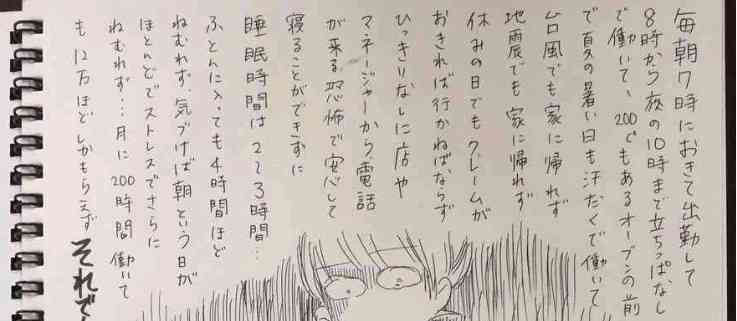 毎朝7時におきて出勤して
8時から夜の10時まで立ちっぱなし
で働いて、200℃もあるオーブンの前
で夏の暑い日も汗だくで働いて
台風でも家に帰れず
地震でも家に帰れず
休みの日でもクレームが
おきれば行かねばならず
ひっきりなしに店や
マネージャーから電話
が来る恐怖で安心して
寝ることができずに
睡眠時間は2~3時間…
ふとんに入っても4時間ほど
ねむれず、気づけば朝という日が
ほとんどでストレスでさらに
ねむれず…月に200時間働いて
も12万ほどしかもらえず
それで